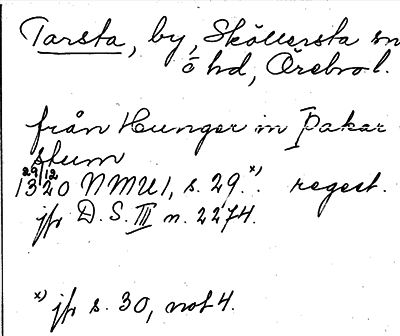 Tarsta, by, Sköllersta sn
ö hd, Örebro l.
från Hunger in Þakar
stum
29/12
1320 NMU1, s. 29.x) regest.
jfr D.S. III n. 2274.
x) jfr s. 30, not 4.